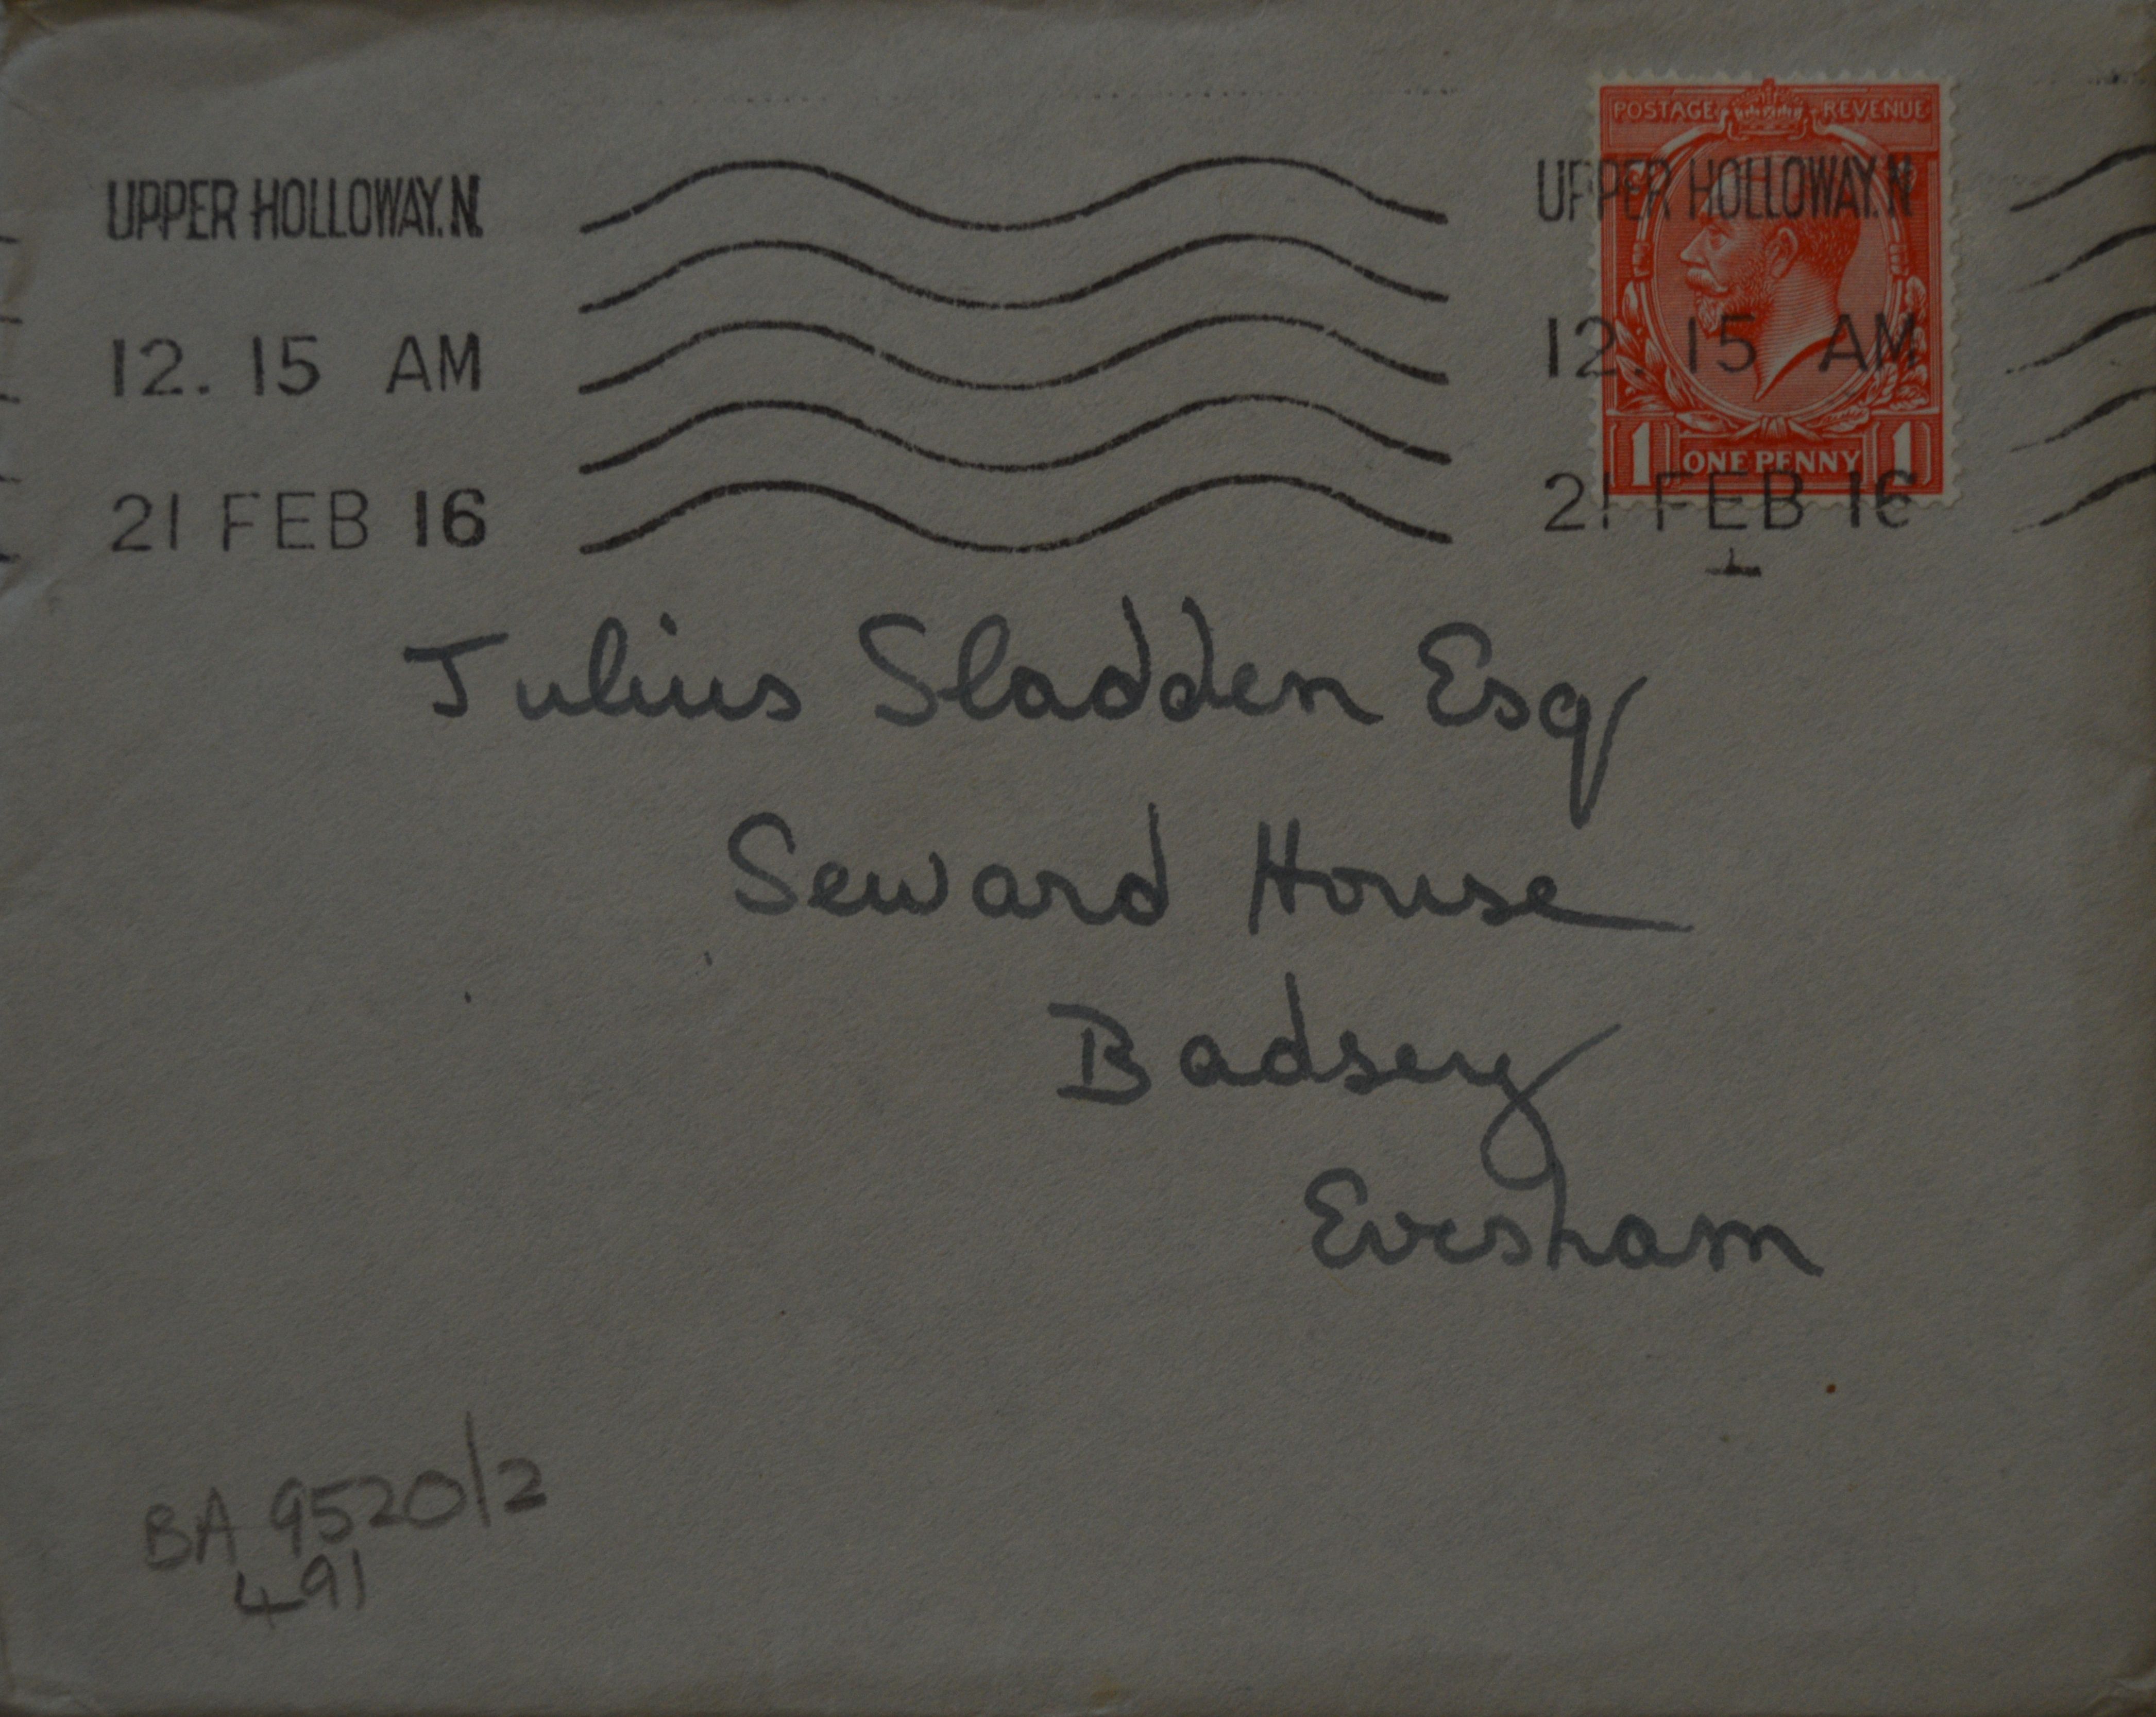 POSTAGE REVENUE
UPPER HOLLOWAY.N. UPPER HOLLOWAY.N
12. 15 AM 12. 15 AM
1 ONE PENNY 1
21 FEB 16 21 FEB 16
Julius Sladden Esq
Seward House
Badsey
Evesham
BA 9520/2
491